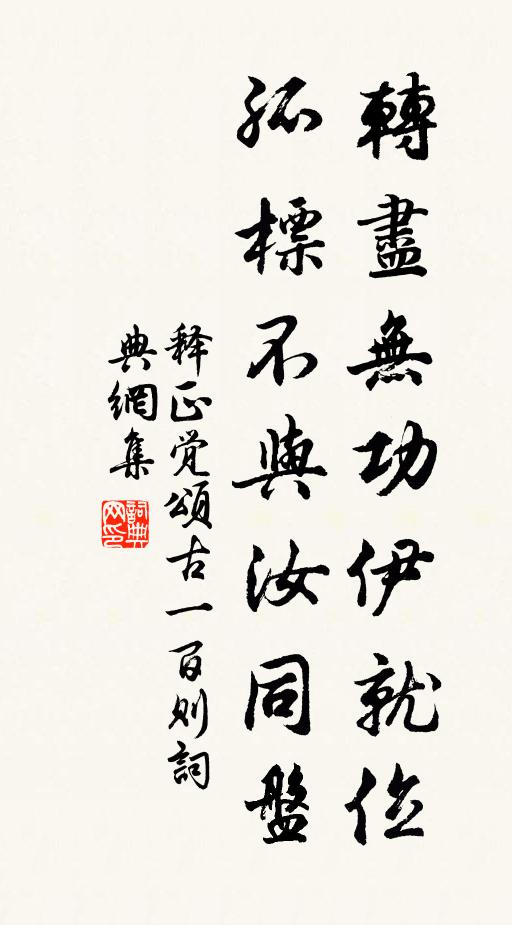 轉盡無功伊就位
孤標不與汝同盤
释正觉頌古一百则詞
典網集
詞典
网印